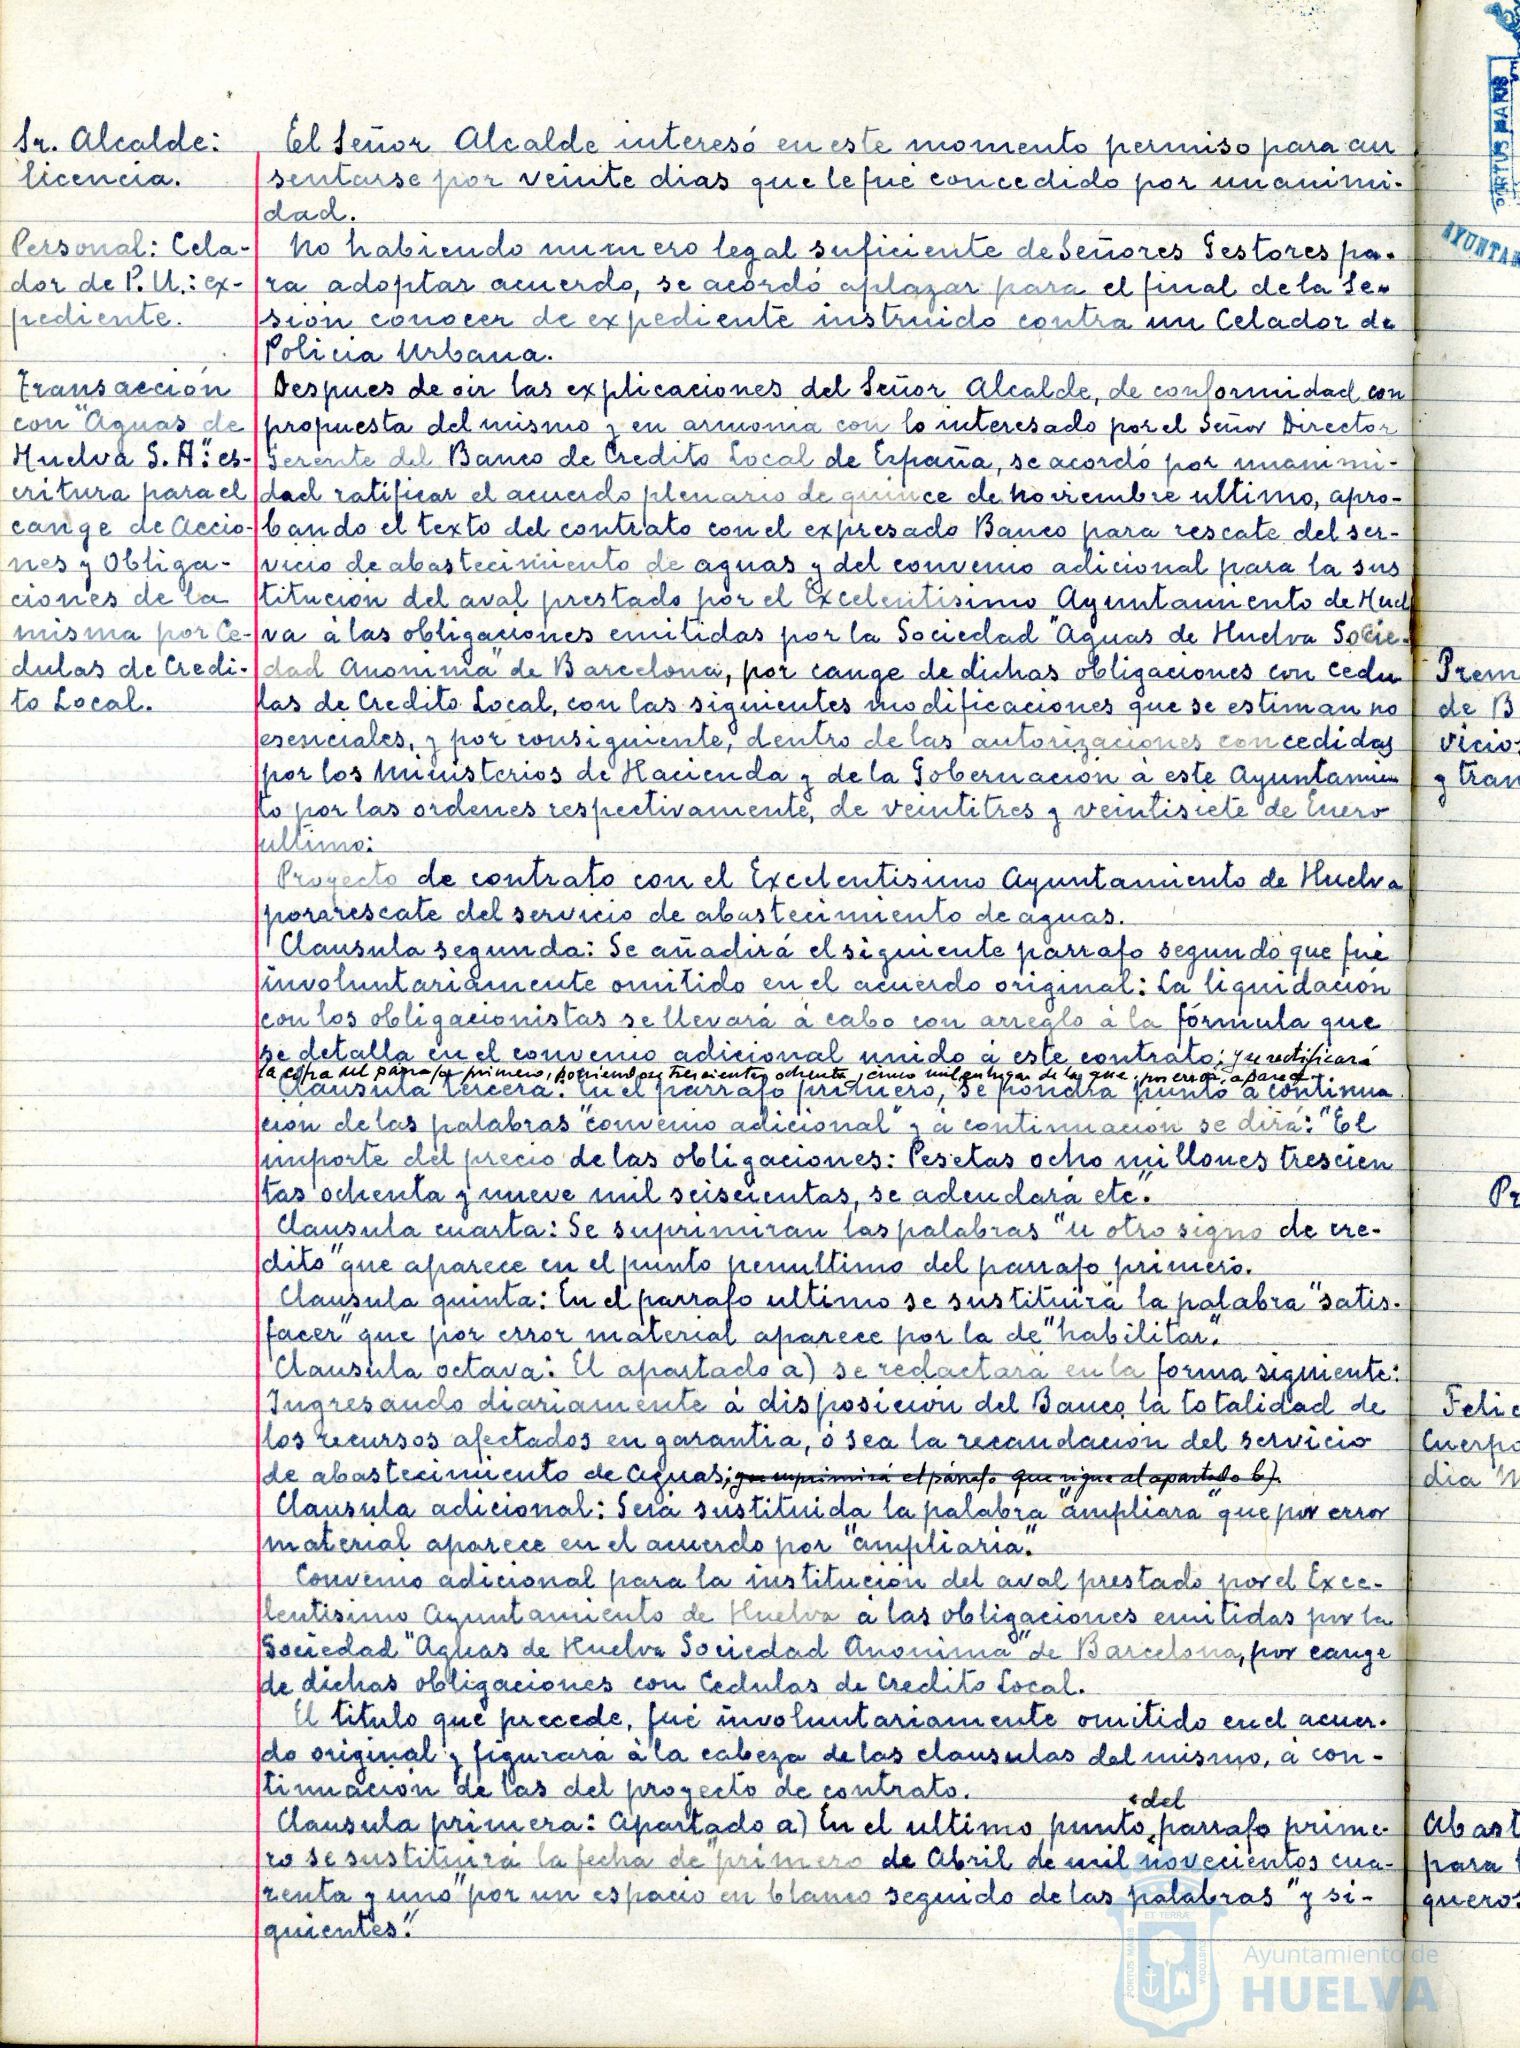 Sr. Alcalde:
licencia.
El Señor Alcalde interesó en este momento permiso para au
sentarse por veinte dias que le fué concedido por unanimi-
dad.
Personal: Cela-
dor de P. U.: ex-
pediente.
No habiendo numero legal suficiente de Señores Gestores pa-
ra adoptar acuerdo, se acordó aplazar para el final de la Se-
sión conocer de expediente instruido contra un Celador de
Policia Urbana.
Transacción
con "Aguas de
Huelva S. A": es-
critura para el
cange de Accio-
nes y Obliga-
ciones de la
misma por Ce-
dulas de Credi-
to Local.
Despues de oir las explicaciones del Señor Alcalde, de conformidad con
propuesta del mismo y en armonia con lo interesado por el Señor Director
Gerente del Banco de Credito Local de España, se acordó por unanimi-
dad ratificar el acuerdo plenario de quince de Noviembre ultimo, apro-
bando el texto del contrato con el expresado Banco para rescate del ser-
vicio de abastecimiento de aguas y del convenio adicional para la sus
titución del aval prestado por el Excelentisimo Ayuntamiento de Huel
va á las obligaciones emitidas por la Sociedad "Aguas de Huelva Socie-
dad Anonima" de Barcelona, por cange de dichas obligaciones con Cedu
las de Credito Local, con las siguientes modificaciones que se estiman no
esenciales, y por consiguiente, dentro de las autorizaciones concedidas
por los Ministerios de Hacienda y de la Gobernación á este Ayuntamien
to por las ordenes respectivamente, de veintitres y veintisiete de Enero
ultimo:
Proyecto de contrato con el Excelentisimo Ayuntamiento de Huelva
pararescate del servicio de abastecimiento de aguas.
Clausula segunda: Se añadirá el siguiente parrafo segundo que fué
involuntariamente omitido en el acuerdo original: La liquidación
con los obligacionistas se llevará á cabo con arreglo á la fórmula que
se detalla en el convenio adicional unido á este contrato; y se rectificará
la cifra del párrafo primero, poniendose trescientas ochenta y cinco mil en lugar de la que, por error, aparece.
Clausula tercera: En el parrafo primero, se pondrá punto á continua
ción de las palabras "convenio adicional" y á continuación se dirá: "El
importe del precio de las obligaciones: Pesetas ocho millones trescien
tas ochenta y nueve mil seiscientas, se adeudará etc".
Clausula cuarta: Se suprimiran las palabras "u otro signo de cre-
dito" que aparece en el punto penultimo del parrafo primero.
Clausula quinta: En el parrafo ultimo se sustituirá la palabra "satis-
facer" que por error material aparece por la de "habilitar".
Clausula octava: El apartado a) se redactará en la forma siguiente:
Ingresando diariamente á disposición del Banco la totalidad de
los recursos afectados en garantia, ó sea la recaudación del servicio
de abastecimiento de Aguas; que suprimirá el párrafo que sigue al apartado b).
Clausula adicional: Será sustituida la palabra "ampliara" que por error
material aparece en el acuerdo por "ampliaria".
Convenio adicional para la institución del aval prestado por el Exce-
lentisimo Ayuntamiento de Huelva á las obligaciones emitidas por la
Sociedad "Aguas de Huelva Sociedad Anonima" de Barcelona, por cange
de dichas obligaciones con Cedulas de Credito Local.
El titulo que precede, fué involuntariamente omitido en el acuer-
do original y figurará á la cabeza de las clausulas del mismo, á con-
tinuación de las del proyecto de contrato.
del
Clausula primera: Apartado a) En el ultimo punto parrafo prime-
ro se sustituirá la fecha de "primero de Abril de mil novecientos cua-
renta y uno" por un espacio en blanco seguido de las palabras "y si-
guientes".
PORTUS MARIS
AYUNTAM
Prem
de B
vicios
y tran
Pr
Felic
Cuerpo
dia
Abast
para
queros
Ayuntamiento de
HUELVA